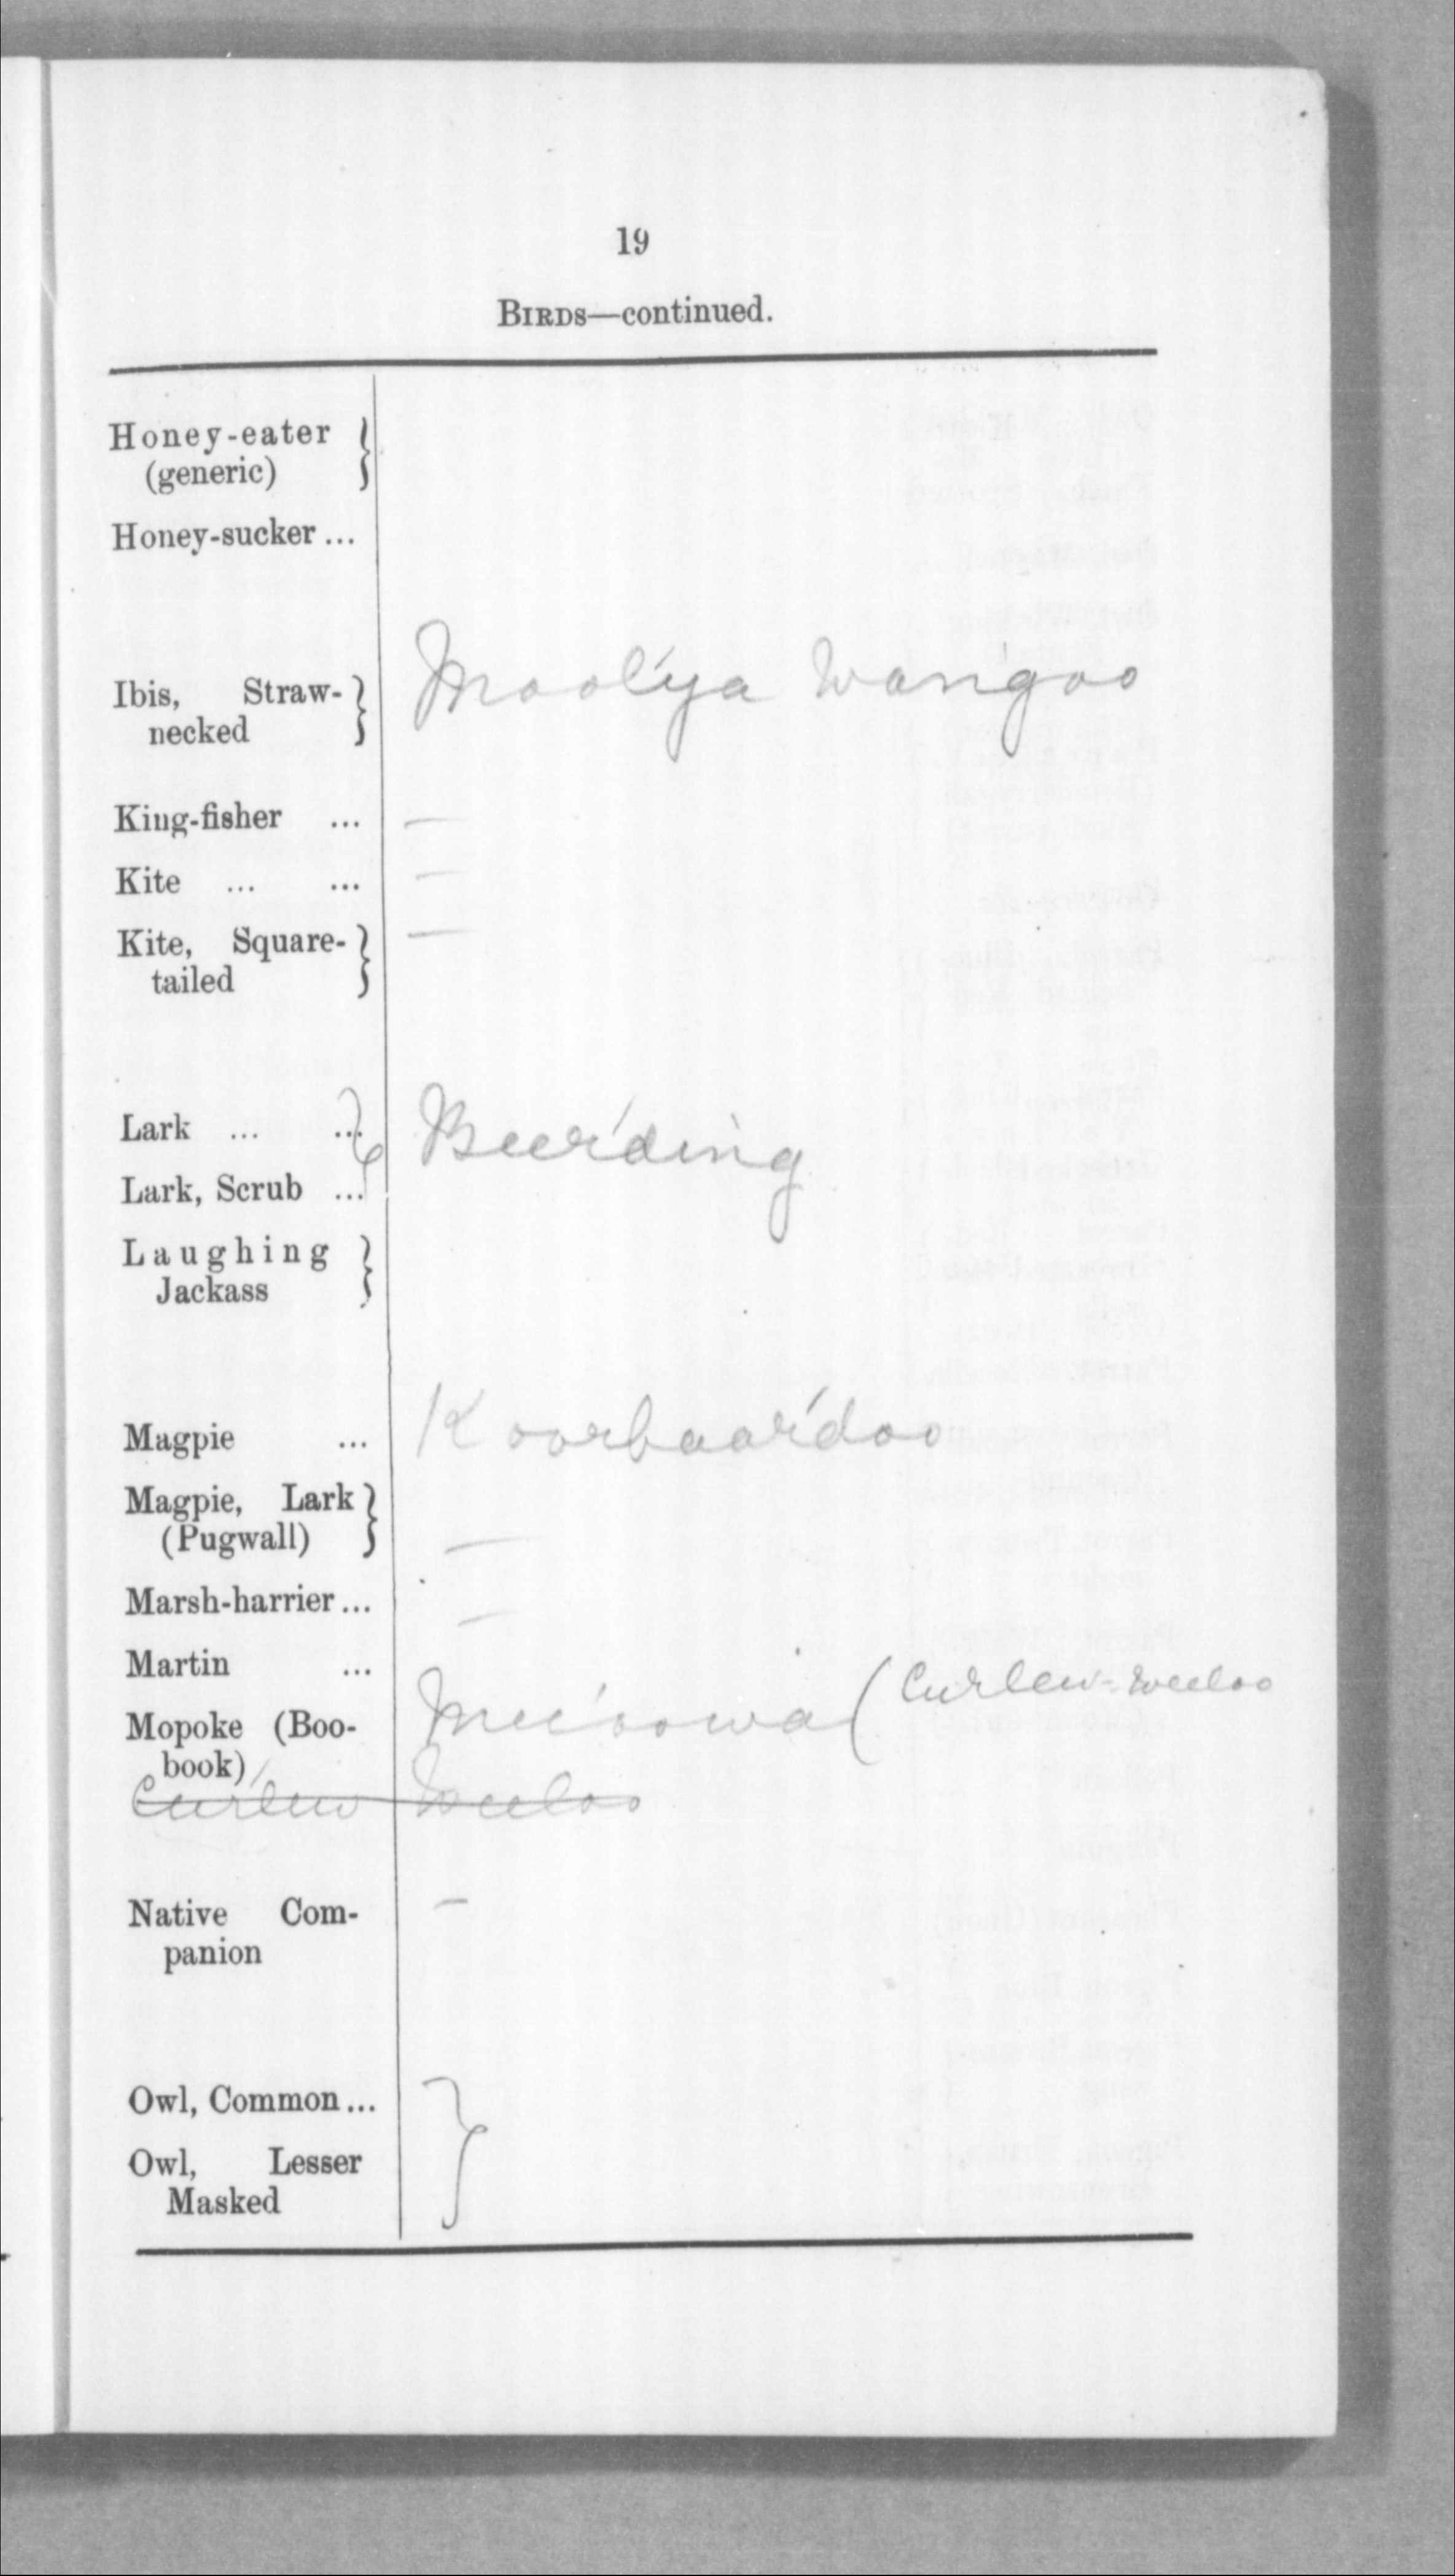 19
BIRDS—continued.
Honey-eater }
(generic)
Honey-sucker ...
Ibis, Straw- } Mool'ya Wan'goo
necked
King-fisher ... —
Kite ... ... —
Kite, Square- } —
tailed
Lark ... ... } Beer'ding
Lark, Scrub ...
Laughing }
Jackass
Magpie ... Koorbaar'doo
Magpie, Lark } —
(Pugwall)
Marsh-harrier ... —
Martin ...
Mopoke (Boo- (Curlew - Weeloo
book)
Curlew Weeloo
Native Com- —
panion
Owl, Common ... }
Owl, Lesser
Masked